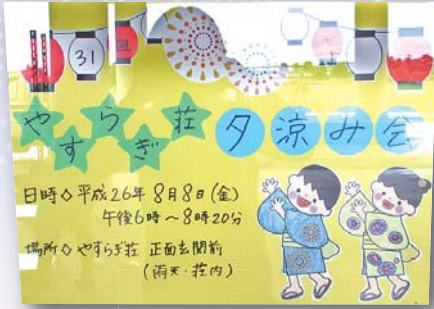 31回
やすらぎ荘 夕涼み会
日時◇平成26年8月8日(金)
午後6時～8時20分
場所◇やすらぎ荘 正面玄関前
(雨天・荘内)